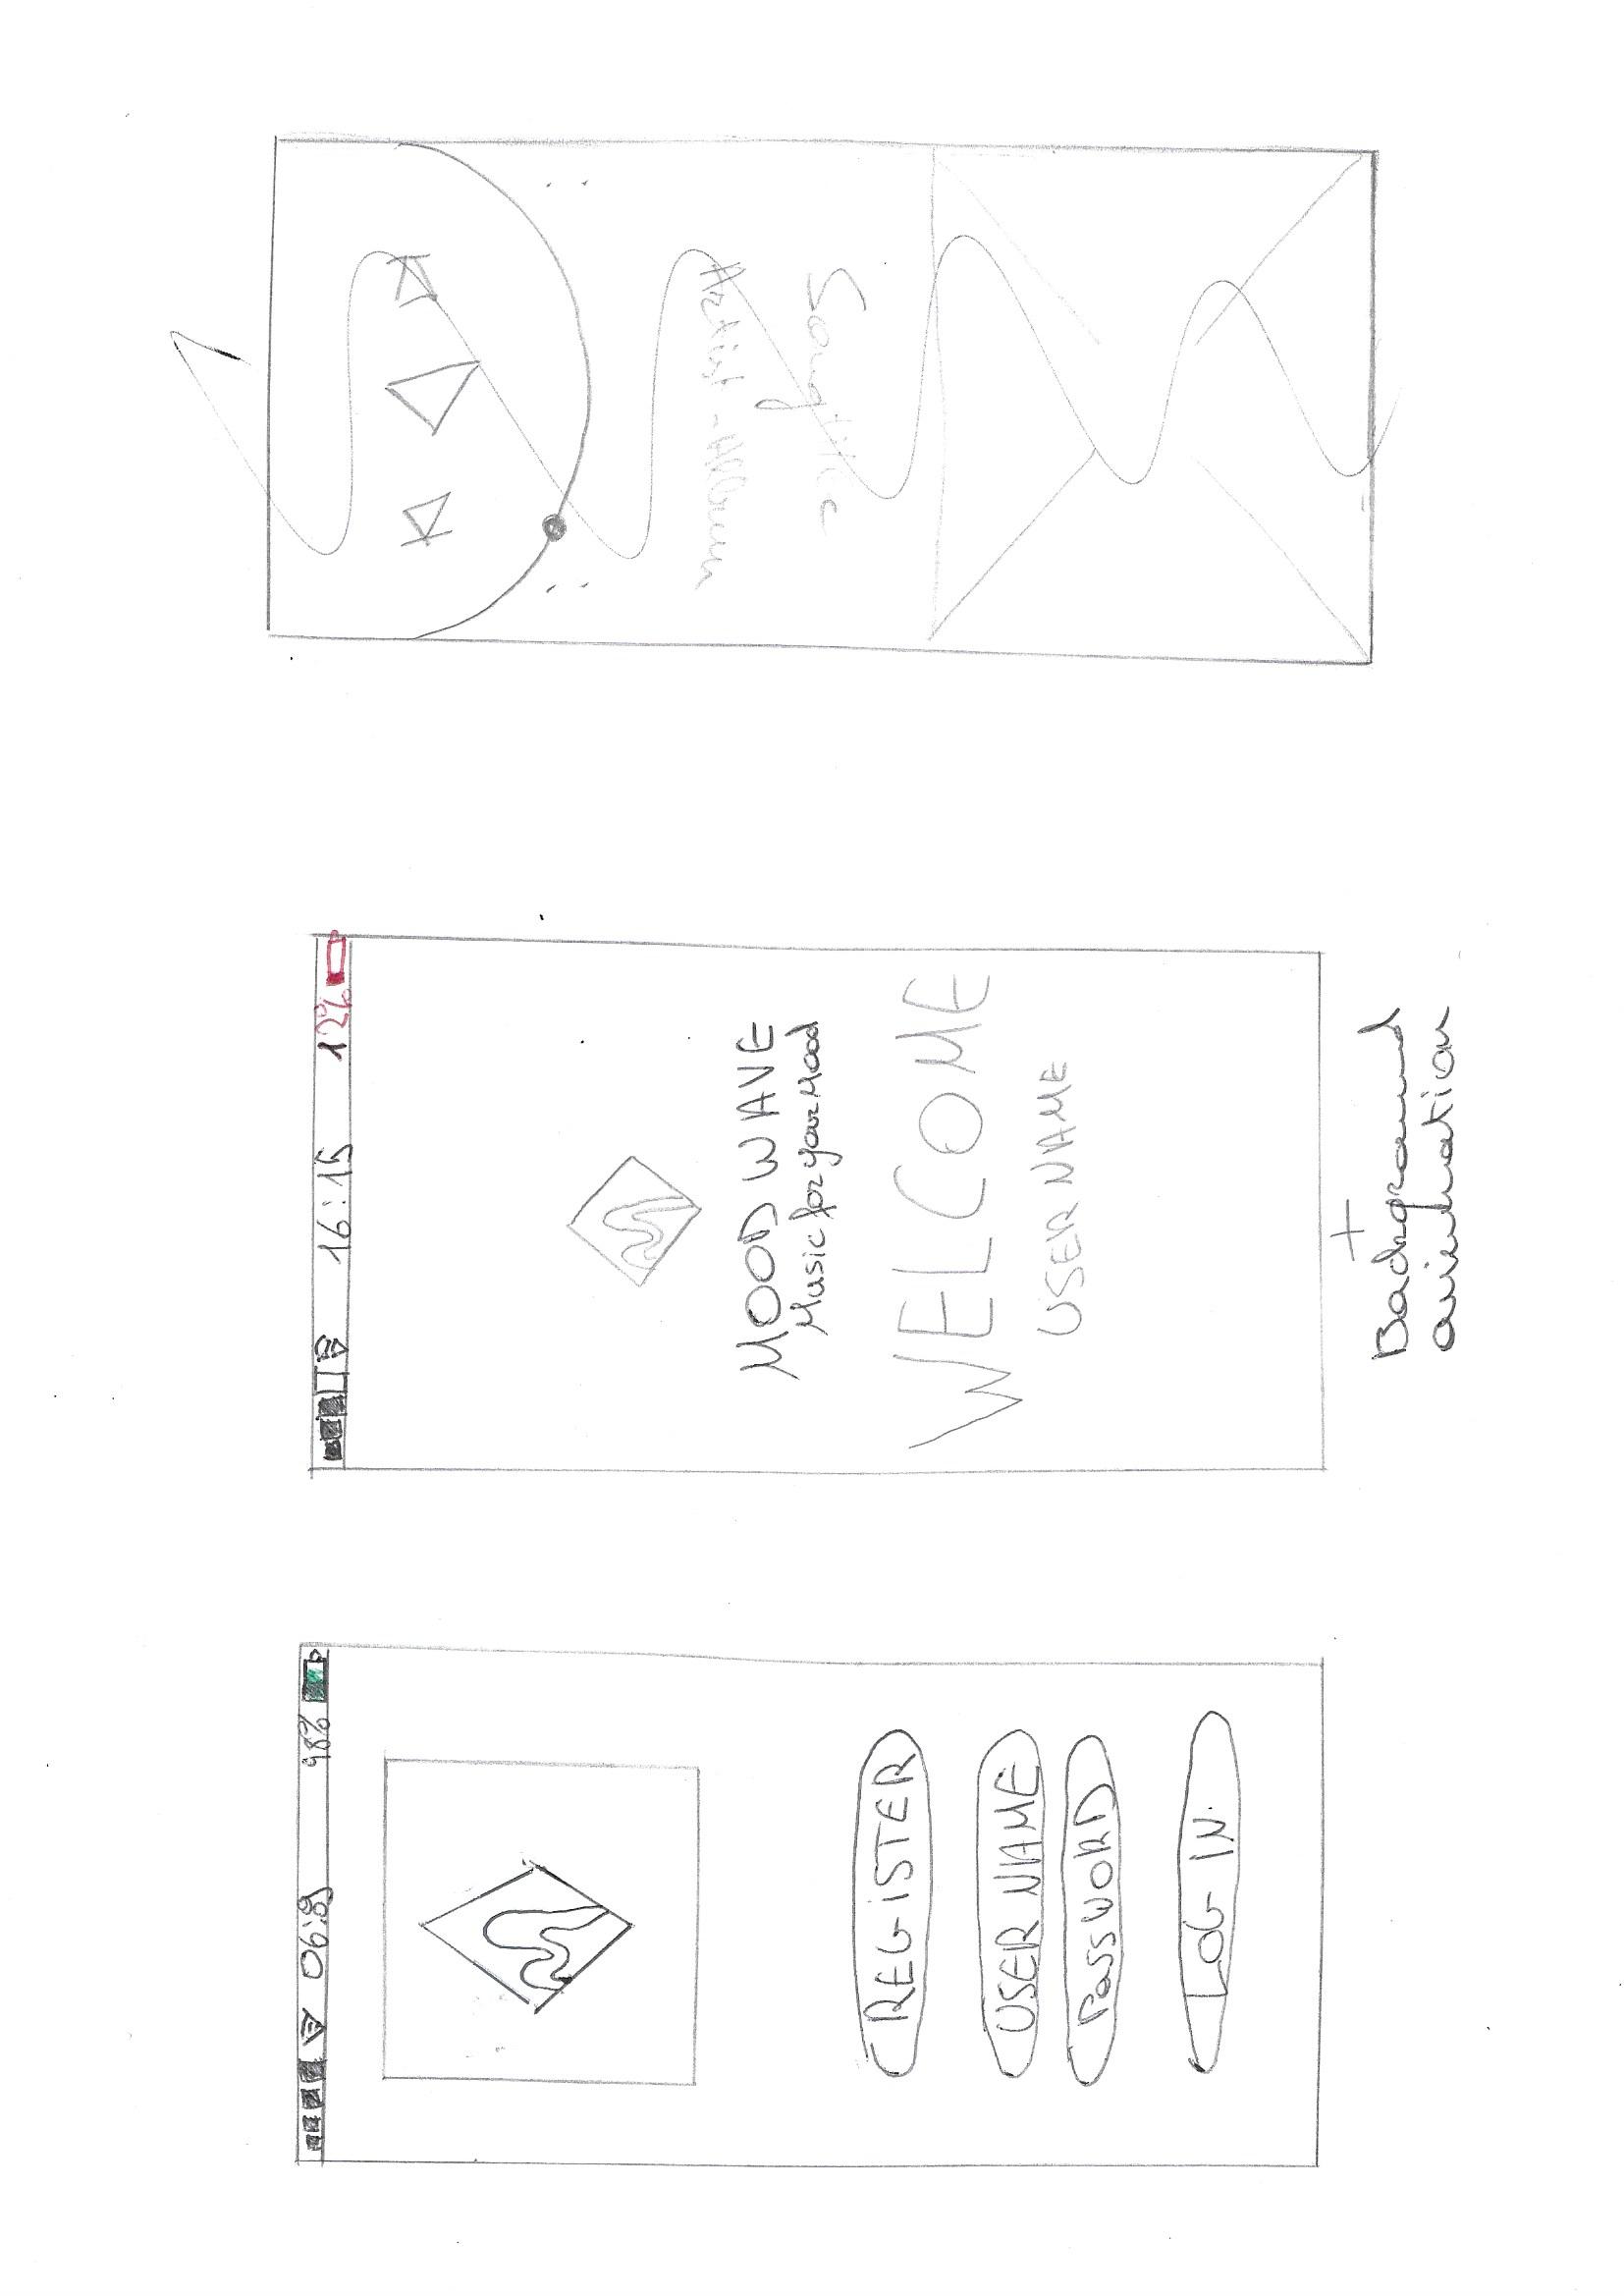 06:89
98%
REGISTER
USER NAME
PassWORD
LOG IN.
16:15
12%
MOOD WAVE
Music for your Mood
WELCOME
USER NAME
+
Background
animation
Song title
Artist - Album